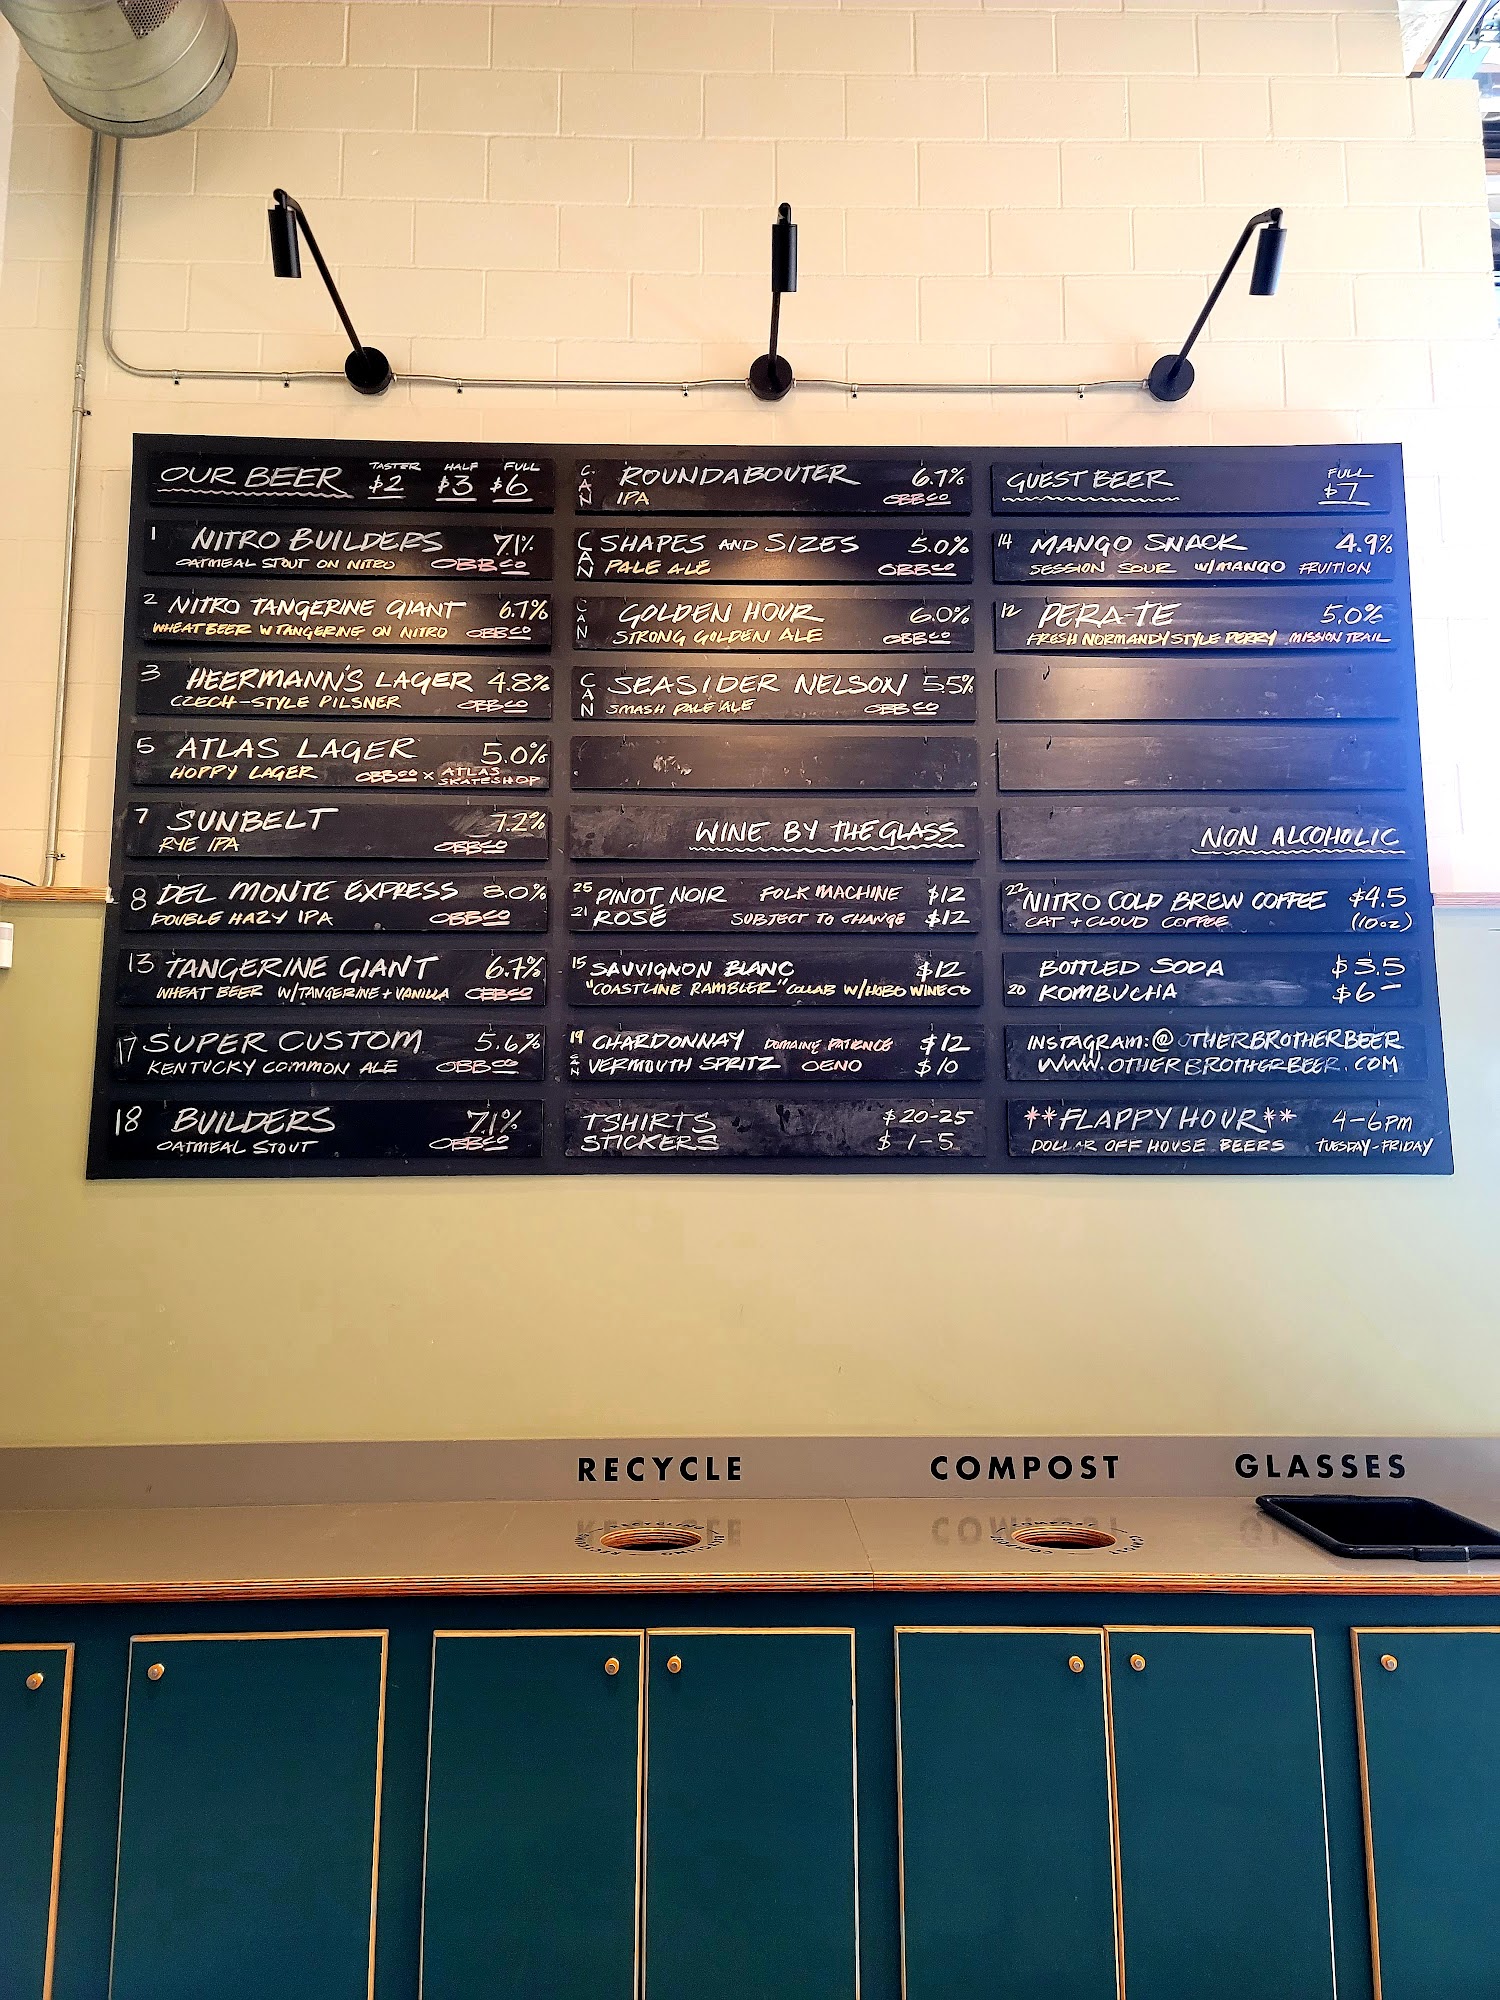 OUR BEER TASTER $2 HALF $3 FULL $6
1 NITRO BUILDERS 7.1%
OATMEAL STOUT ON NITRO OBBCO
2 NITRO TANGERINE GIANT 6.7%
WHEAT BEER W TANGERINE ON NITRO OBBCO
3 HEERMANN'S LAGER 4.8%
CZECH-STYLE PILSNER OBBCO
5 ATLAS LAGER 5.0%
HOPPY LAGER OBBCO X ATLAS SKATESHOP
7 SUNBELT 7.2%
RYE IPA OBBCO
8 DEL MONTE EXPRESS 8.0%
DOUBLE HAZY IPA OBBCO
13 TANGERINE GIANT 6.7%
WHEAT BEER W/TANGERINE + VANILLA OBBCO
17 SUPER CUSTOM 5.6%
KENTUCKY COMMON ALE OBBCO
18 BUILDERS 7.1%
OATMEAL STOUT OBBCO
CAN ROUNDABOUTER 6.7%
IPA OBBCO
CAN SHAPES AND SIZES 5.0%
PALE ALE OBBCO
CAN GOLDEN HOUR 6.0%
STRONG GOLDEN ALE OBBCO
CAN SEASIDER NELSON 5.5%
SMASH PALE ALE OBBCO
WINE BY THE GLASS
25 PINOT NOIR FOLK MACHINE $12
21 ROSÉ SUBJECT TO CHANGE $12
15 SAUVIGNON BLANC $12
"COASTLINE RAMBLER" COLLAB W/HOBO WINE CO
19 CHARDONNAY DOMAINE PATIENCE $12
CAN VERMOUTH SPRITZ OENO $10
TSHIRTS $20-25
STICKERS $1-5
GUEST BEER FULL $7
14 MANGO SNACK 4.9%
SESSION SOUR W/MANGO FRUITION
12 PERA-TE 5.0%
FRESH NORMANDY STYLE PERRY MISSION TRAIL
NON ALCOHOLIC
22 NITRO COLD BREW COFFEE $4.5
CAT + CLOUD COFFEE (10oz)
BOTTLED SODA $3.5
20 KOMBUCHA $6-
INSTAGRAM: @OTHERBROTHERBEER
WWW.OTHERBROTHERBEER.COM
**FLAPPY HOUR** 4-6PM
DOLLAR OFF HOUSE BEERS TUESDAY-FRIDAY
RECYCLE COMPOST GLASSES